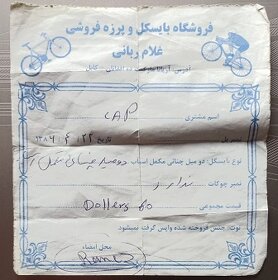 فروشگاه بایسکل و پرزه فروشی
غلام ربانی
آدرس:
اسم مشتری CAP
تاریخ ۱۳۸۶/۴/۲۲
نوع بایسکل: دو میل جنائی مکمل اسباب
نمبر چوکات ندارد
قیمت مجموعی Dollers 60
نوت: جنس فروخته شده واپس گرفته نمیشود
محل امضاء